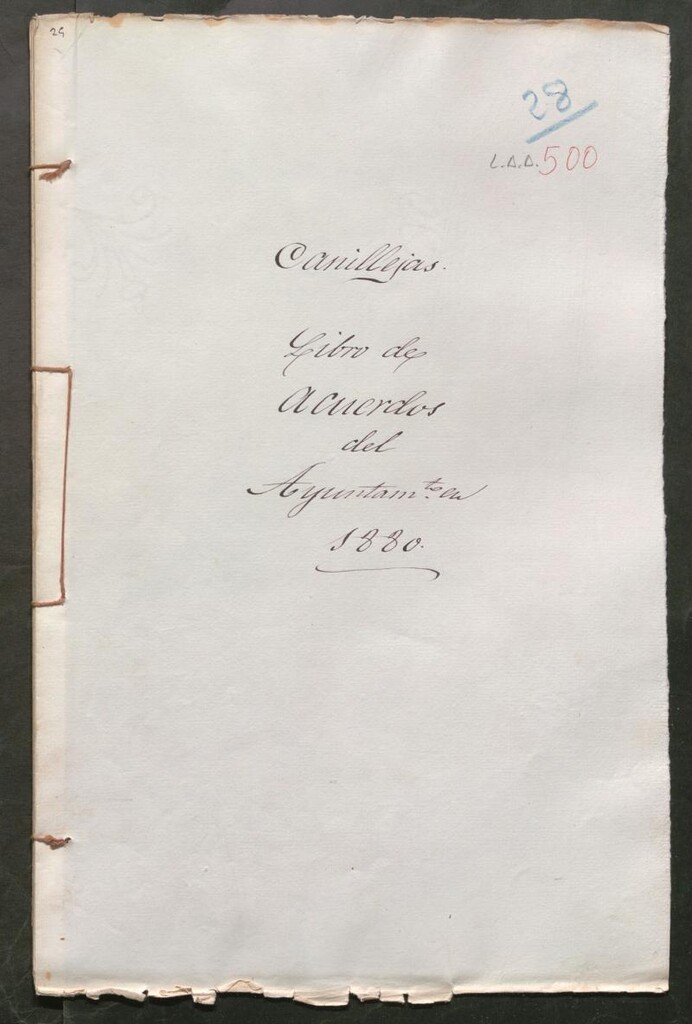 29
28
L.A.A. 500
Canillejas.
Libro de
Acuerdos
del
Ayuntam.to en
1880.